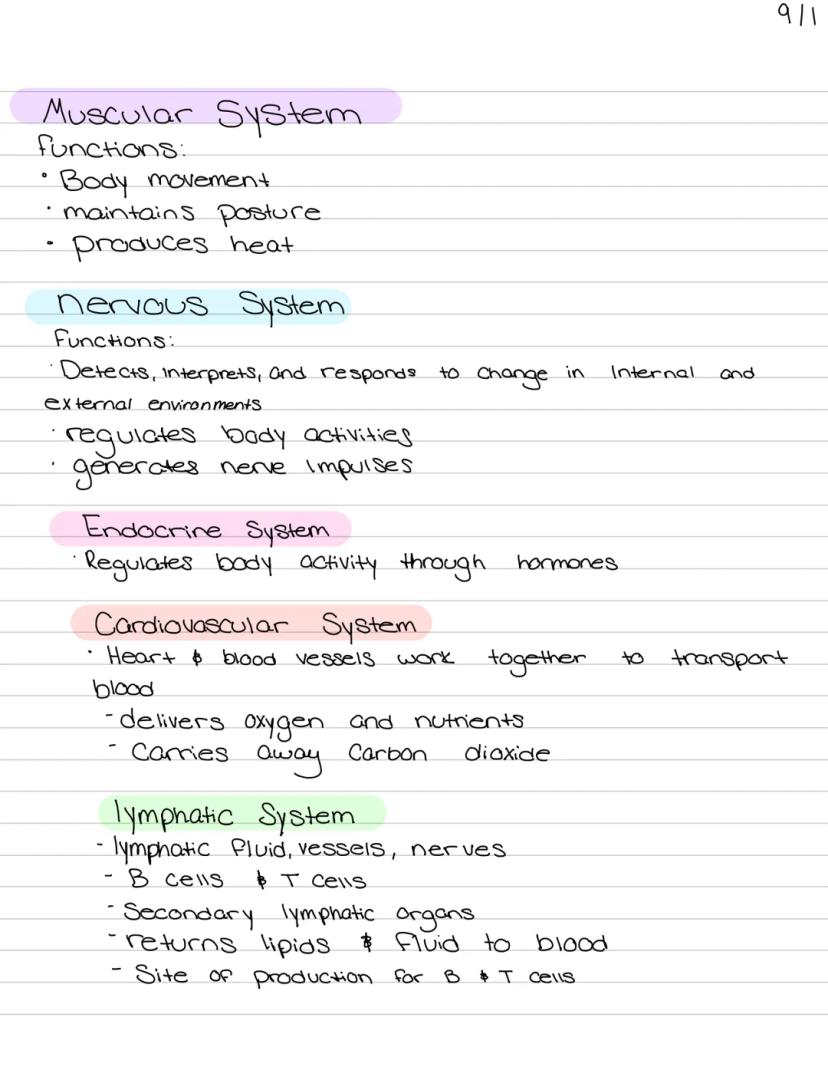 9/1
Muscular System
functions:
• Body movement
• maintains posture
• produces heat
nervous System
Functions:
• Detects, interprets, and responds to change in Internal and
external environments
• regulates body activities
• generates nerve impulses
Endocrine System
• Regulates body activity through hormones
Cardiovascular System
• Heart & blood vessels work together to transport
blood
- delivers oxygen and nutrients
- Carries away Carbon dioxide
lymphatic System
- lymphatic fluid, vessels, nerves
- B cells & T cells
- Secondary lymphatic organs
- returns lipids & fluid to blood
- Site of production for B & T cells